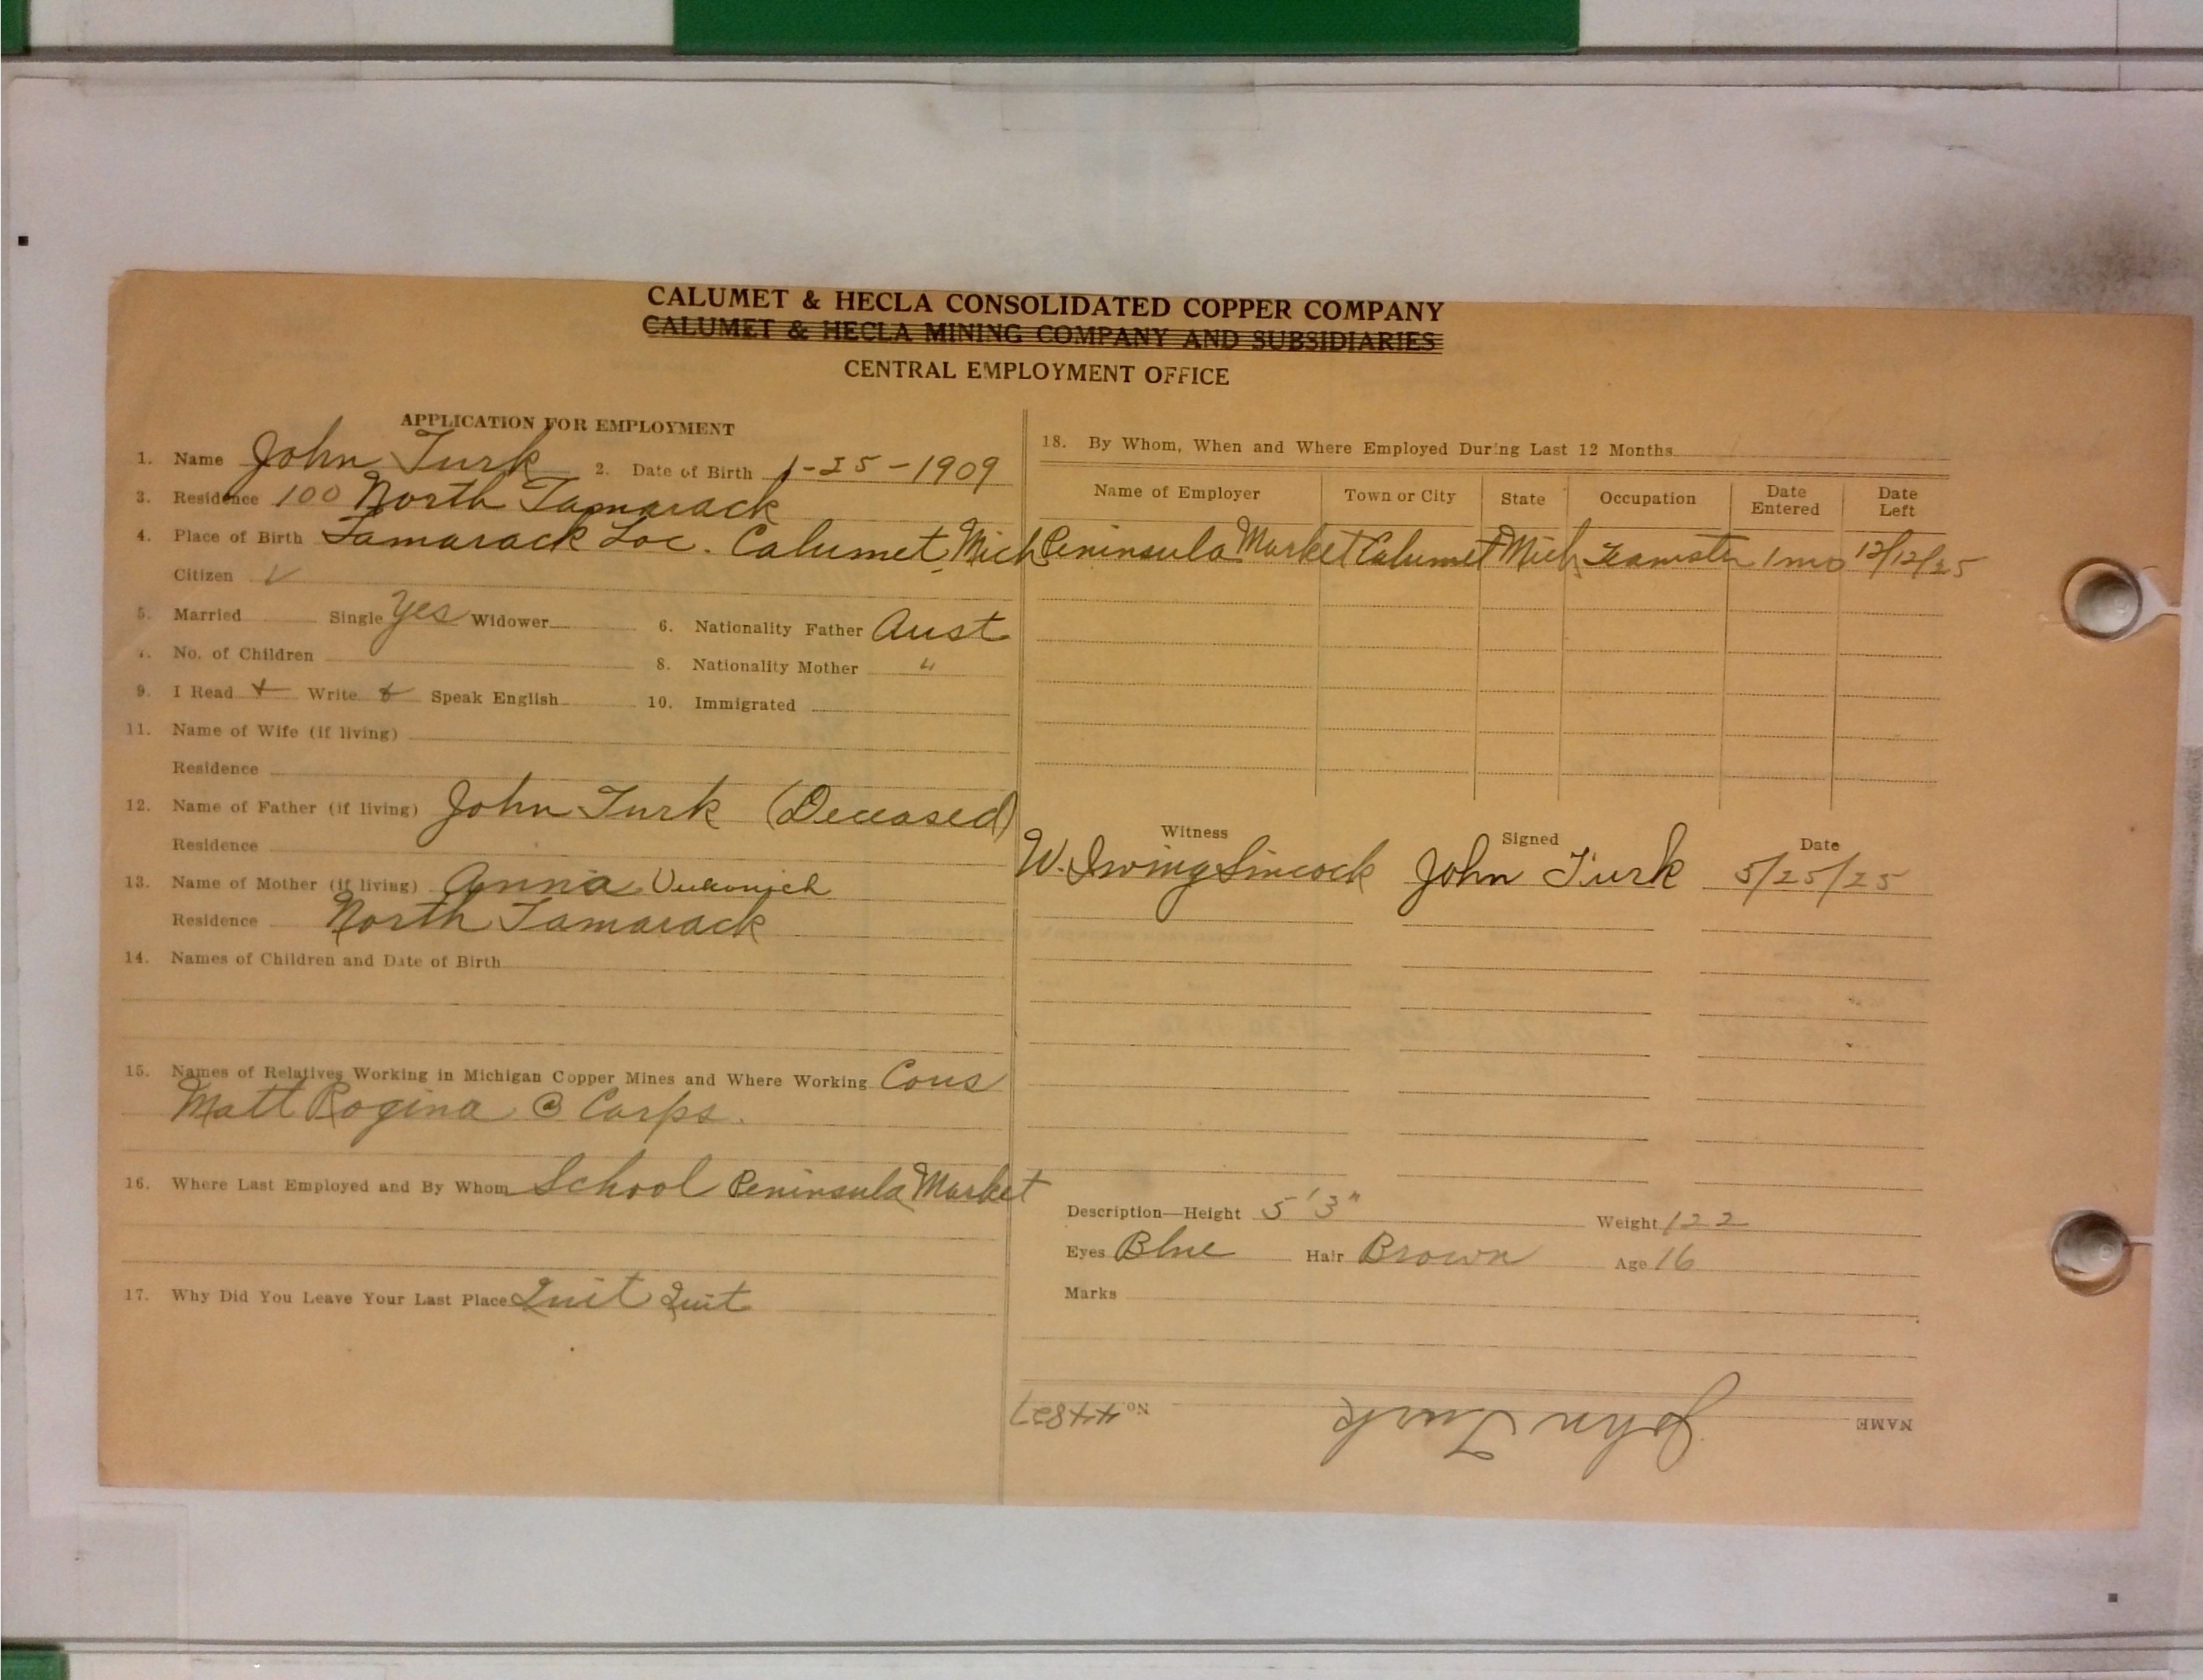 CALUMET & HECLA CONSOLIDATED COPPER COMPANY
CALUMET & HECLA MINING COMPANY AND SUBSIDIARIES
CENTRAL EMPLOYMENT OFFICE
APPLICATION FOR EMPLOYMENT
1. Name John Turk 2. Date of Birth 1-25-1909
3. Residence 100 North Tamarack
4. Place of Birth Tamarack Loc. Calumet, Mich
Citizen ✓
5. Married Single Yes Widower 6. Nationality Father Aust
7. No. of Children 8. Nationality Mother "
9. I Read + Write + Speak English 10. Immigrated
11. Name of Wife (if living)
Residence
12. Name of Father (if living) John Turk (Deceased)
Residence
13. Name of Mother (if living) Anna
Residence North Tamarack
14. Names of Children and Date of Birth
15. Names of Relatives Working in Michigan Copper Mines and Where Working Cous
Matt Rogina @ Carps.
16. Where Last Employed and By Whom School Peninsula Market
17. Why Did You Leave Your Last Place Quit Quit
18. By Whom, When and Where Employed During Last 12 Months
Name of Employer Town or City State Occupation Date Entered Date Left
Peninsula Market Calumet Mich Teamster 1 mo 12/12/25
Witness Signed Date
W. Irving Sincock John Turk 5/25/25
Description—Height 5'3" Weight 122
Eyes Blue Hair Brown Age 16
Marks
NAME John Turk No. 44827